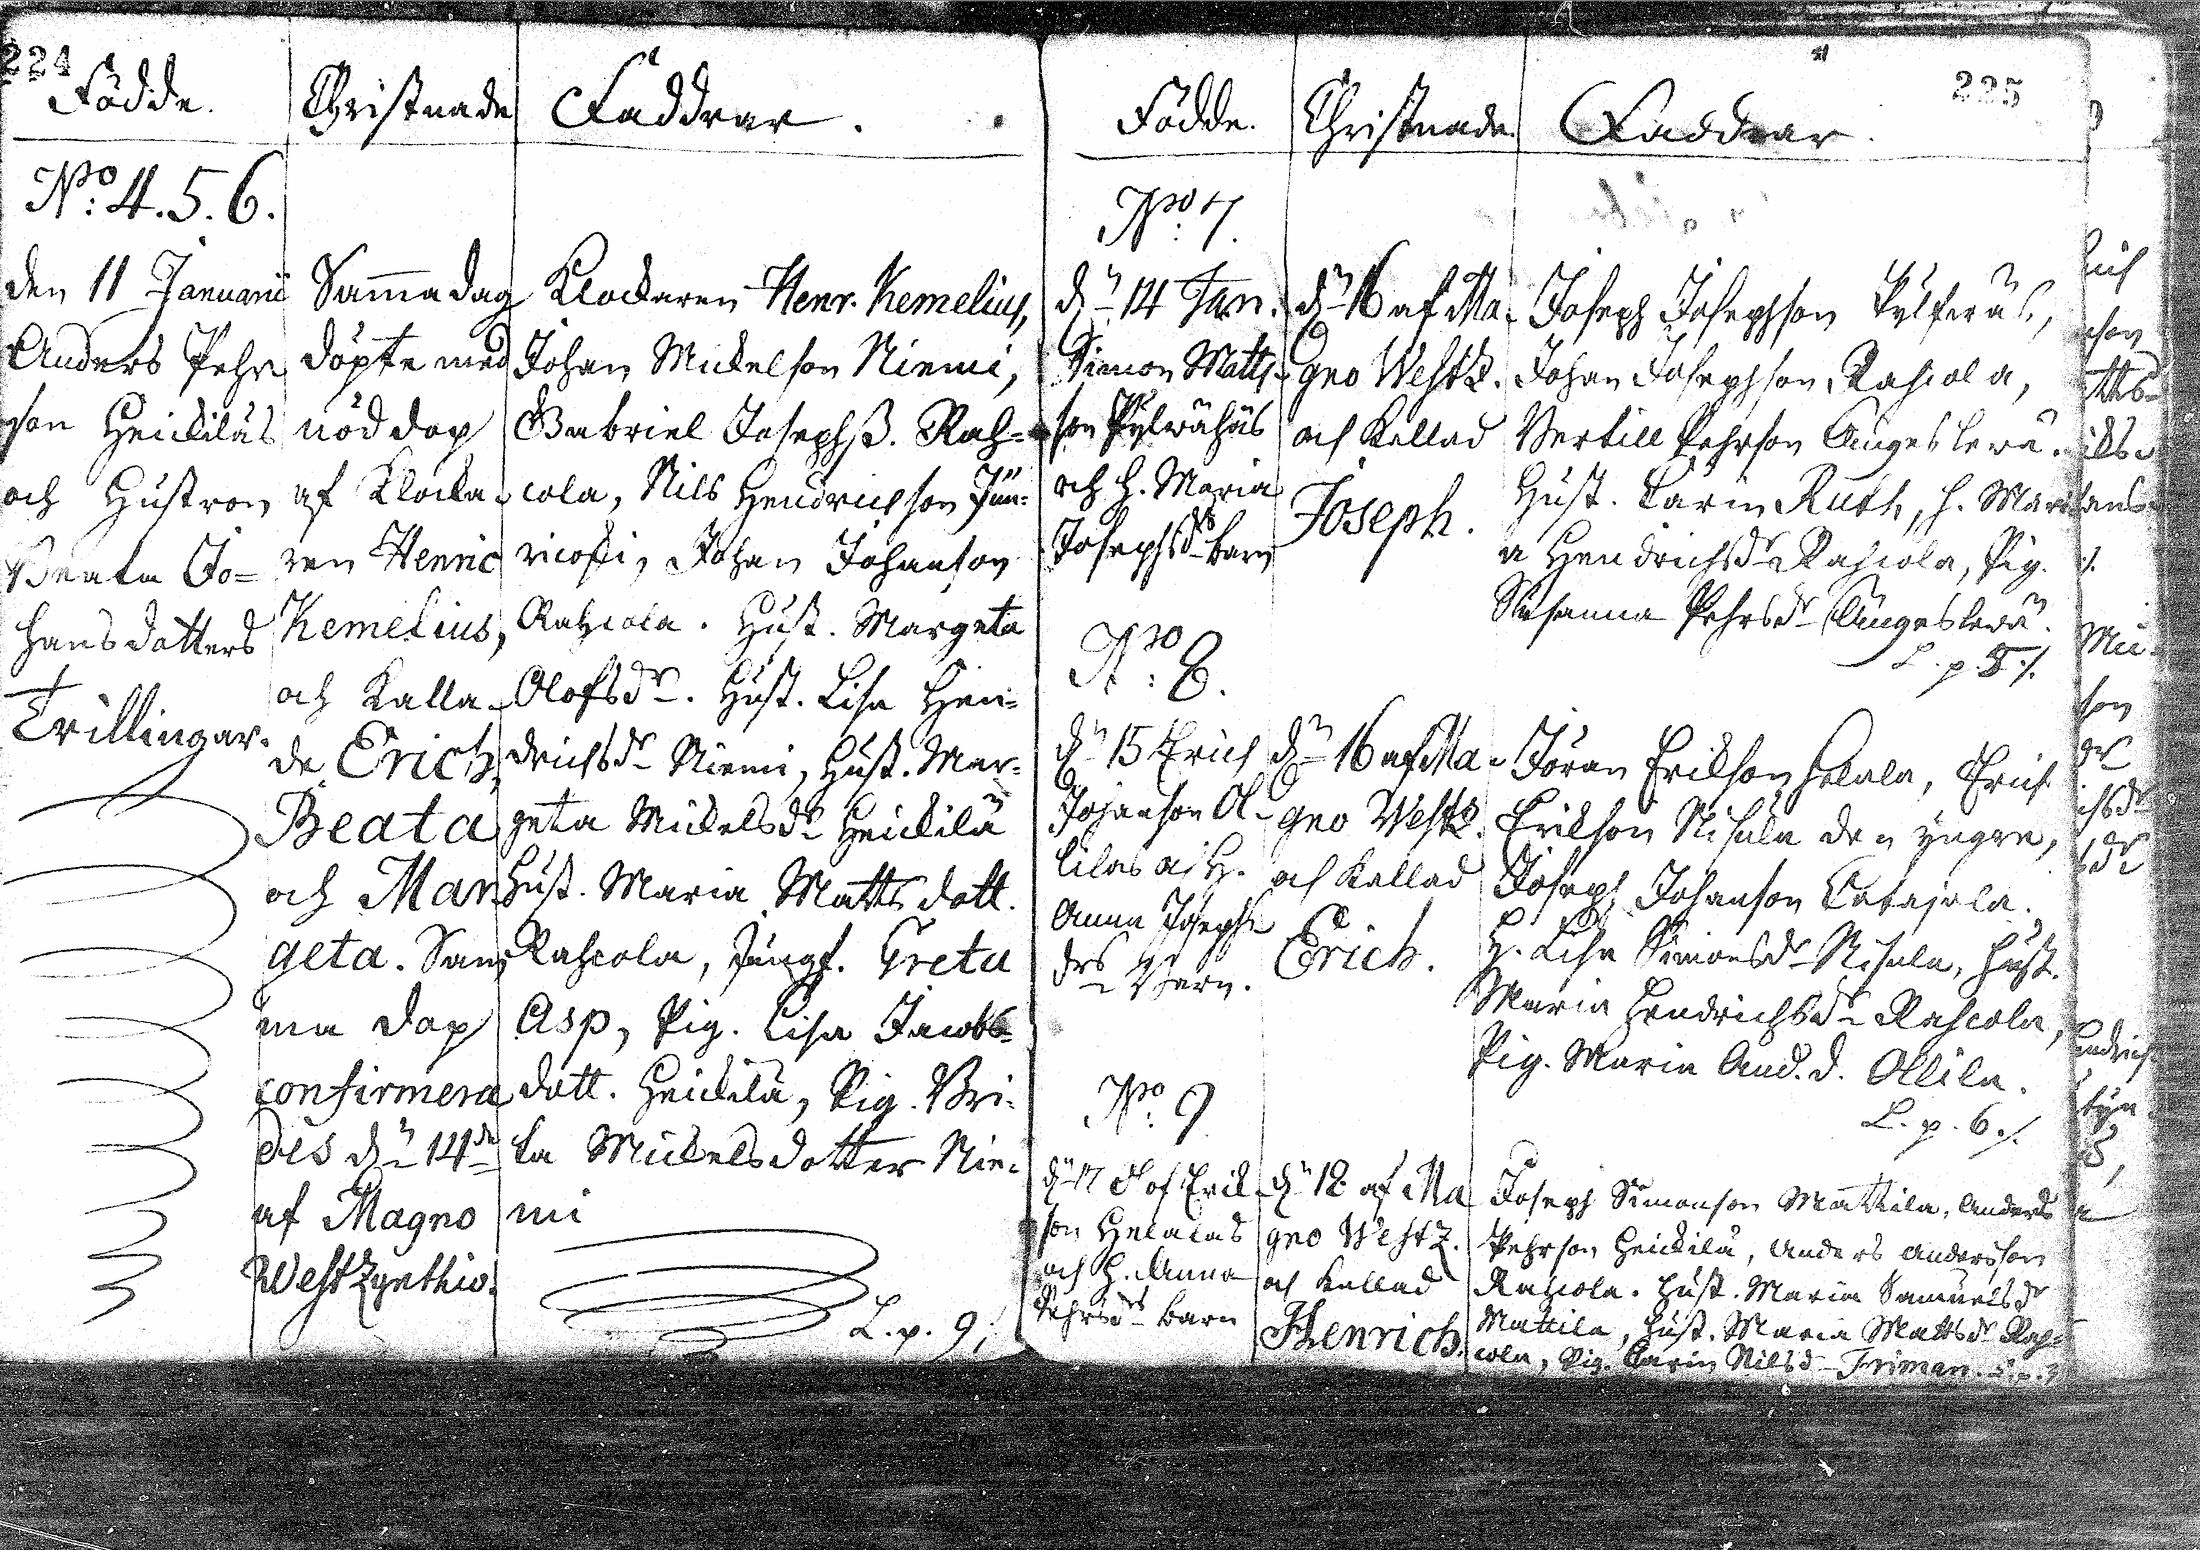 224
Födde.
Christnade
Faddrar.
No: 4. 5. 6.
den 11 Januarii
Anders Pehr
son Heickiläs
och Hustron
Beata Jo=
hans dotters
Trillingar.
Samma dag
döpte med
nöddop
af Klocka-
ren Henric
Kemelius,
och Kalla-
de Erich,
Beata
och Mar
geta. Sam
ma dop
confirmera
des dn 14de
af Magno
WestZynthio.
Klockaren Henr. Kemelius,
Johan Mickelson Niemi,
Gabriel Josephß. Rah=
cola, Nils Hendrichson Jun-
Johan Johanson
Rahcola. Hust. Margeta
Olofsdr. Hust. Lisa Hen=
drichsdr Niemi, Hust. Mar=
geta Mickelsdr Heickilä
Hust. Maria Matts dott.
Rahcola, Jungf. Greta
Asp, Pig. Lisa Jacobs
dott. Heickilä, Pig. Bri-
ta Mickelsdotter Nie-
mi
L. p. 9.
225
Födde.
Christnade.
Faddrar.
No 7.
dn 14 Jan.
Simon Matts-
son
och H. Maria
Josephsdrs barn
dn 16 af Ma-
gno WestZ.
och Kallad
Joseph.
Joseph Josephson
Johan Josephson Rahcola,
Bertill Pehrson Ångeslevä.
Hust. Carin Ruth, H. Mari
a Hendrichsdr Rahcola, Pig.
Susanna Pehrsdr Ångeslevä.
L. p. 5 ./.
No: 8.
dn 15 Erich
Johanson Ol-
lilas och H.
Anna Josephs
drs Barn.
dn 16 af Ma-
gno WestZ.
och Kallad
Erich.
Jöran Erikson Helala, Erich
Erikson Niskala den yngre,
Joseph Johanson Catajala.
H. Lisa Simonsdr Niskala, Hust.
Maria Hendrichsdr Rahcola,
Pig. Maria And. d. Ollila.
L. p. 6 ./.
No: 9
dn 17 Olof Erik
son Helalas
och H. Anna
Pehrsdrs barn
dn 18 af Ma
gno WestZ.
och Kallad
Henrich.
Joseph Simonson Mattila, Anders
Pehrson Heickilä, Anders Andersson
Rahcola. Hust. Maria Samuelsdr
Mattila, Hust. Maria Mattsdr Rah=
cola, Pig. Carin Nilsd Friman.